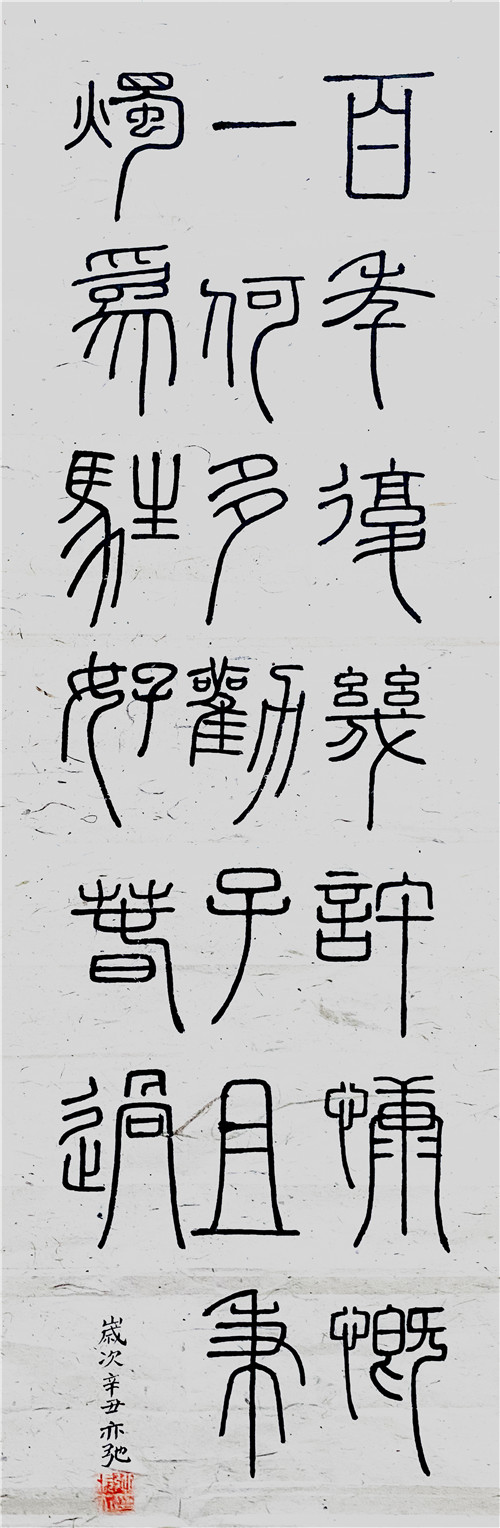 百年復幾許慷慨
一何多勸子且秉
燭爲駐好春過
歲次辛丑亦弛